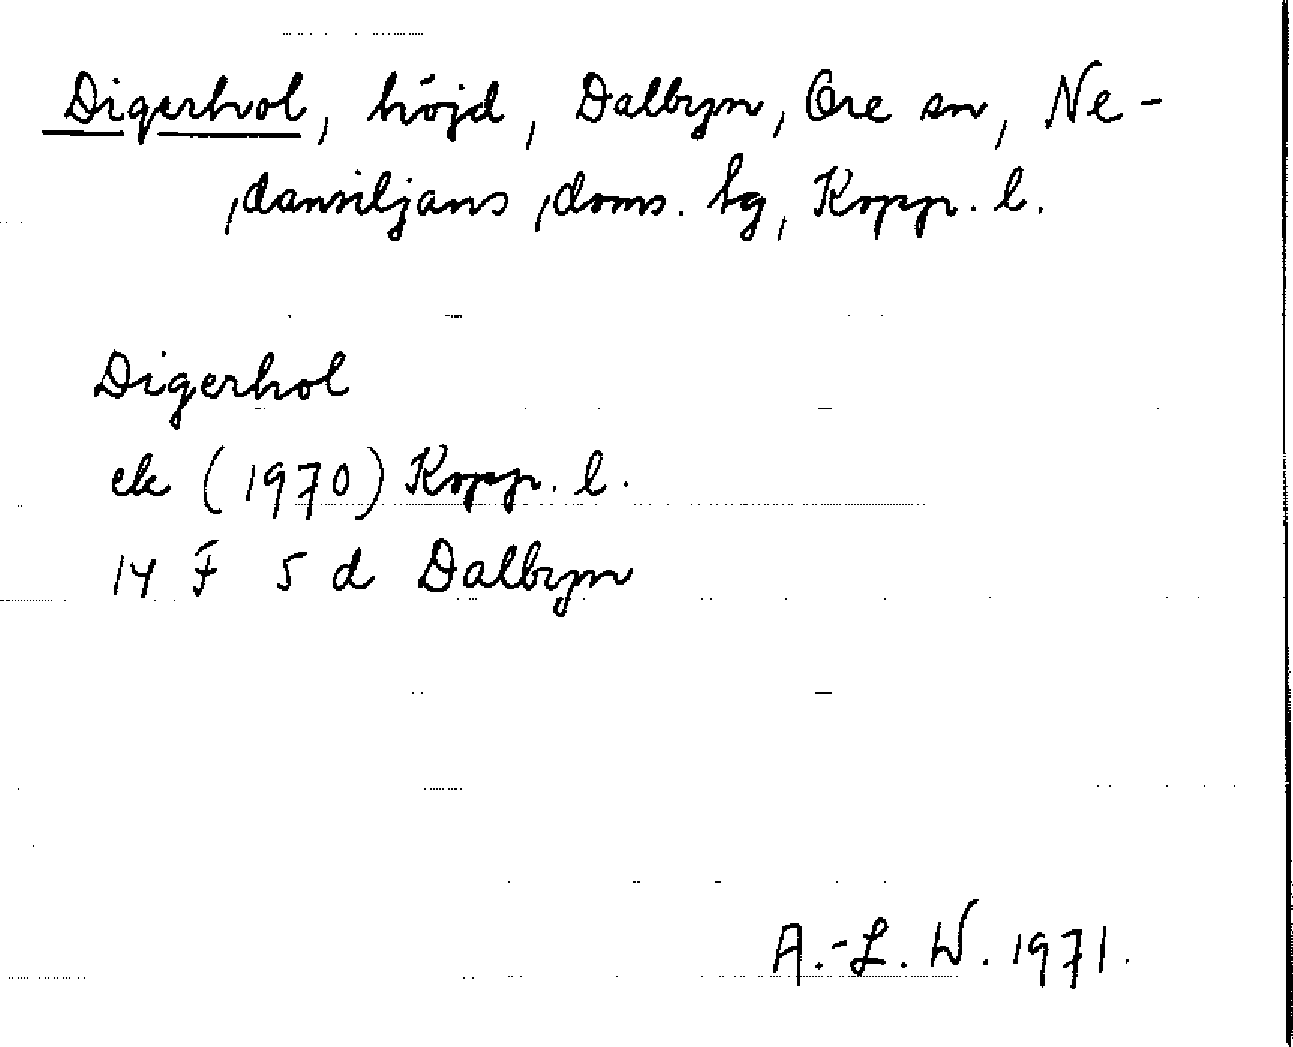 Digerhol, höjd, Dalbyn, Ore sn, Ne-
dansiljans doms. hg, Kopp. l.
Digerhol
ek (1970) Kopp. l.
14 F 5 d Dalbyn
A.-L. W. 1971.